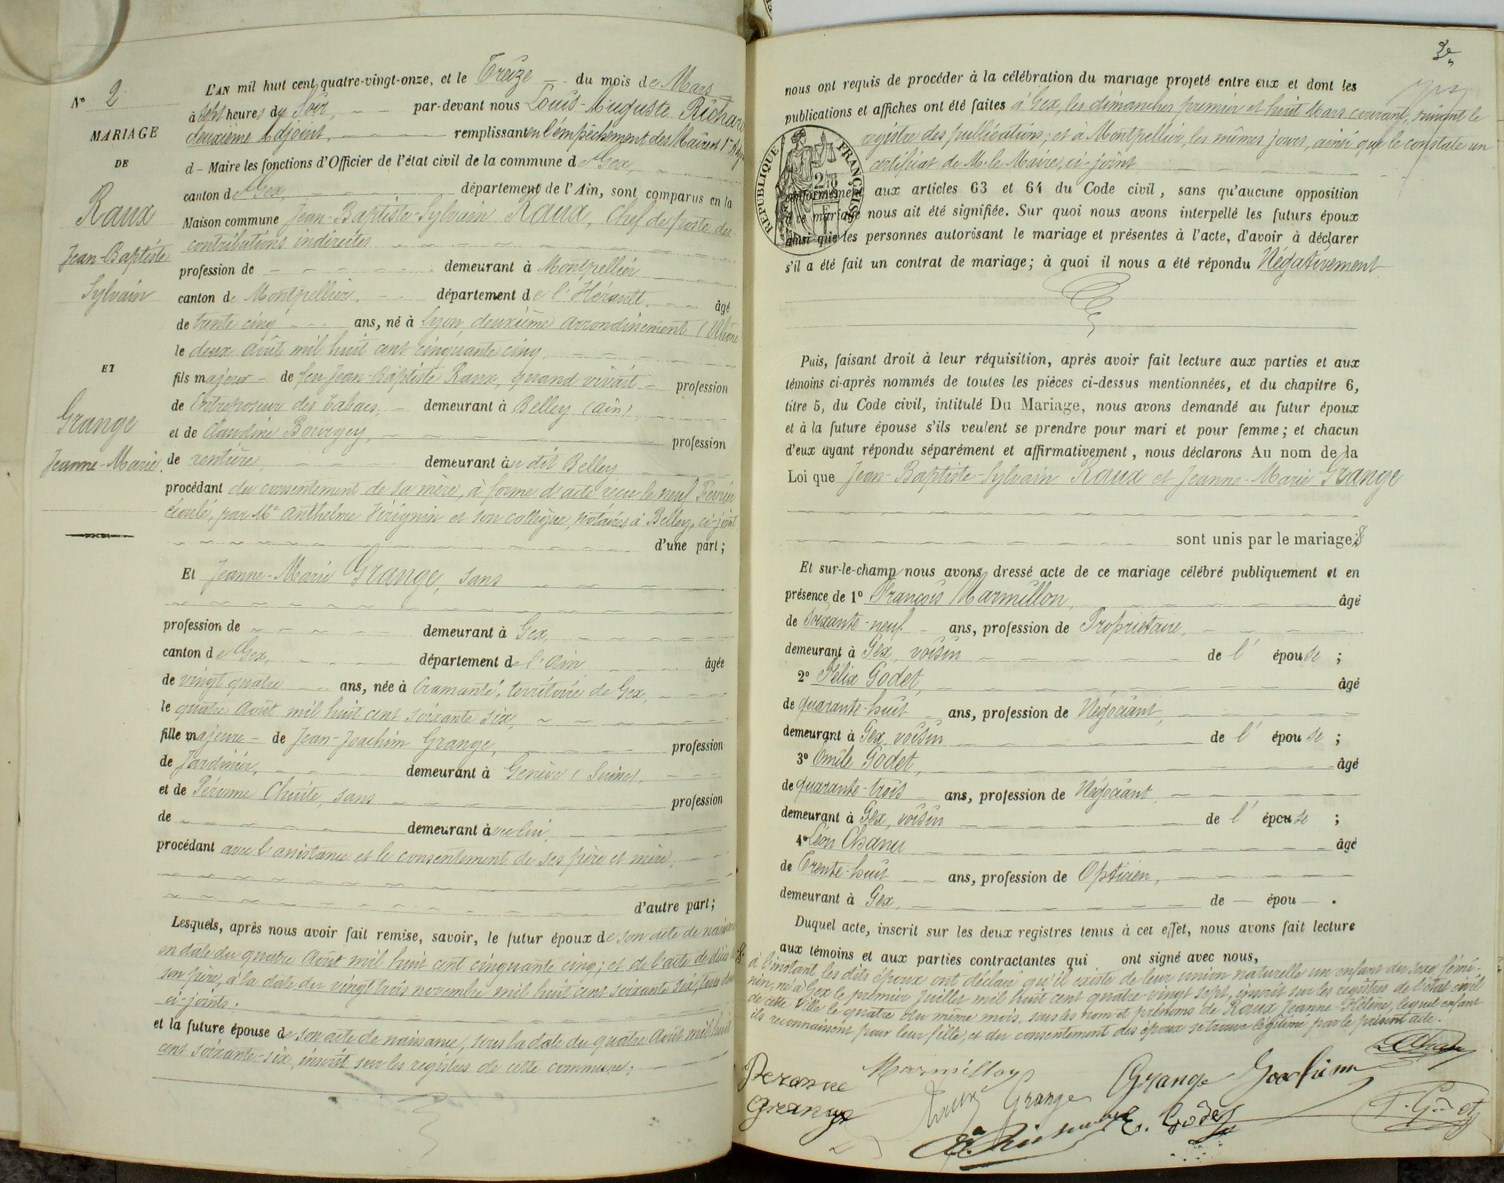 N° 2
MARIAGE
DE
Raux
Jean-Baptiste
Sylvain
ET
Grange
Jeanne-Marie
L'AN mil huit cent quatre-vingt-onze, et le Treize du mois de Mars
à sept heures du Soir, par-devant nous Louis-Auguste Richard
deuxième Adjoint, remplissant en l'empêchement des Maire et 1er
d Maire les fonctions d'Officier de l'état civil de la commune de Gex,
canton de Gex, département de l'Ain, sont comparus en la
Maison commune Jean-Baptiste-Sylvain Raux, Chef de poste des
contributions indirectes
profession de demeurant à Montpellier
canton de Montpellier, département de l'Hérault, âgé
de trente cinq ans, né à Lyon deuxième arrondissement (Rhône
le deux août mil huit cent cinquante cinq
fils majeur de feu Jean-Baptiste Raux, quand vivait profession
de Entreposeur des tabacs, demeurant à Belley (Ain)
et de Claudine Bourgey, profession
de rentière, demeurant au dit Belley
procédant du consentement de sa mère, à forme d'acte reçu le neuf Février
écoulé, par Me Anthelme et son collègue, notaires à Belley, ci-joint
d'une part;
Et Jeanne-Marie Grange, sans
profession de demeurant à Gex
canton de Gex, département de l'Ain âgée
de vingt quatre ans, née à Cramanté, territoire de Gex,
le quatre Août mil huit cent soixante six,
fille majeure de Jean-Joachim Grange, profession
de Jardinier, demeurant à Genève (Suisse)
et de Péronne Chuite, sans profession
de demeurant avec lui,
procédant avec l'assistance et le consentement de ses père et mère,
d'autre part;
Lesquels, après nous avoir fait remise, savoir, le futur époux de son acte de naissance
en date du quatre Août mil huit cent cinquante cinq; et de l'acte de décès de
son père, à la date du vingt trois novembre mil huit cent soixante six,
ci-joints.
et la future épouse de son acte de naissance, sous la date du quatre Août mil huit
cent soixante-six, inscrit sur les registres de cette commune;
3
nous ont requis de procéder à la célébration du mariage projeté entre eux et dont les
publications et affiches ont été faites à Gex, les dimanches premier et huit Mars courant, suivant le
registre des publications; et à Montpellier, les mêmes jours, ainsi que le constate un
certificat de M. le Maire, ci-joint
RÉPUBLIQUE FRANÇAISE
conformément aux articles 63 et 64 du Code civil, sans qu'aucune opposition
à ce mariage nous ait été signifiée. Sur quoi nous avons interpellé les futurs époux
ainsi que les personnes autorisant le mariage et présentes à l'acte, d'avoir à déclarer
s'il a été fait un contrat de mariage; à quoi il nous a été répondu Négativement
Puis, faisant droit à leur réquisition, après avoir fait lecture aux parties et aux
témoins ci-après nommés de toutes les pièces ci-dessus mentionnées, et du chapitre 6,
titre 5, du Code civil, intitulé Du Mariage, nous avons demandé au futur époux
et à la future épouse s'ils veulent se prendre pour mari et pour femme; et chacun
d'eux ayant répondu séparément et affirmativement, nous déclarons Au nom de la
Loi que Jean-Baptiste-Sylvain Raux et Jeanne-Marie Grange
sont unis par le mariage.
Et sur-le-champ nous avons dressé acte de ce mariage célébré publiquement et en
présence de 1° François Marmillon, âgé
de soixante-neuf ans, profession de Propriétaire,
demeurant à Gex, voisin de l'épouse;
2° Félix Godet, âgé
de quarante-huit ans, profession de Négociant,
demeurant à Gex, voisin de l'épouse;
3° Emile Godet, âgé
de quarante-trois ans, profession de Négociant
demeurant à Gex, voisin de l'épouse;
4° Léon Chanu âgé
de Trente-huit ans, profession de Opticien,
demeurant à Gex, de — épou — .
Duquel acte, inscrit sur les deux registres tenus à cet effet, nous avons fait lecture
aux témoins et aux parties contractantes qui ont signé avec nous,
à l'instant les dits époux ont déclaré qu'il existe de leur union naturelle un enfant du sexe fémi-
nin, né à Gex le premier Juillet mil huit cent quatre-vingt sept, inscrit sur les registres de l'état civil
de cette Ville le quatre du même mois, sous les nom et prénoms de Raux Jeanne-Hélène, lequel enfant
ils reconnaissent pour leur fille, et du consentement des époux se trouve légitimé par le présent acte.
Marmillon
Peronne
Grange
Raux
Grange
Grange Joachim
E. Godet
F. Godet